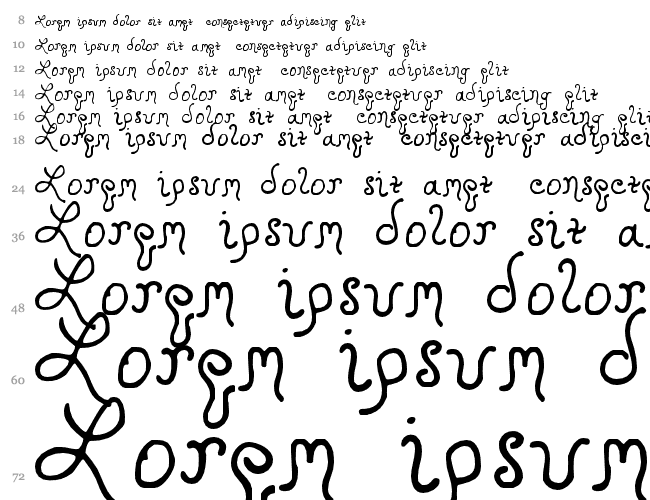 8 Lorem ipsum dolor sit amet consectetuer adipiscing elit
10 Lorem ipsum dolor sit amet consectetuer adipiscing elit
12 Lorem ipsum dolor sit amet consectetuer adipiscing elit
14 Lorem ipsum dolor sit amet consectetuer adipiscing elit
16 Lorem ipsum dolor sit amet consectetuer adipiscing elit
18 Lorem ipsum dolor sit amet consectetuer adipisci
24 Lorem ipsum dolor sit amet consecte
36 Lorem ipsum dolor sit a
48 Lorem ipsum dolor
60 Lorem ipsum d
72 Lorem ipsum